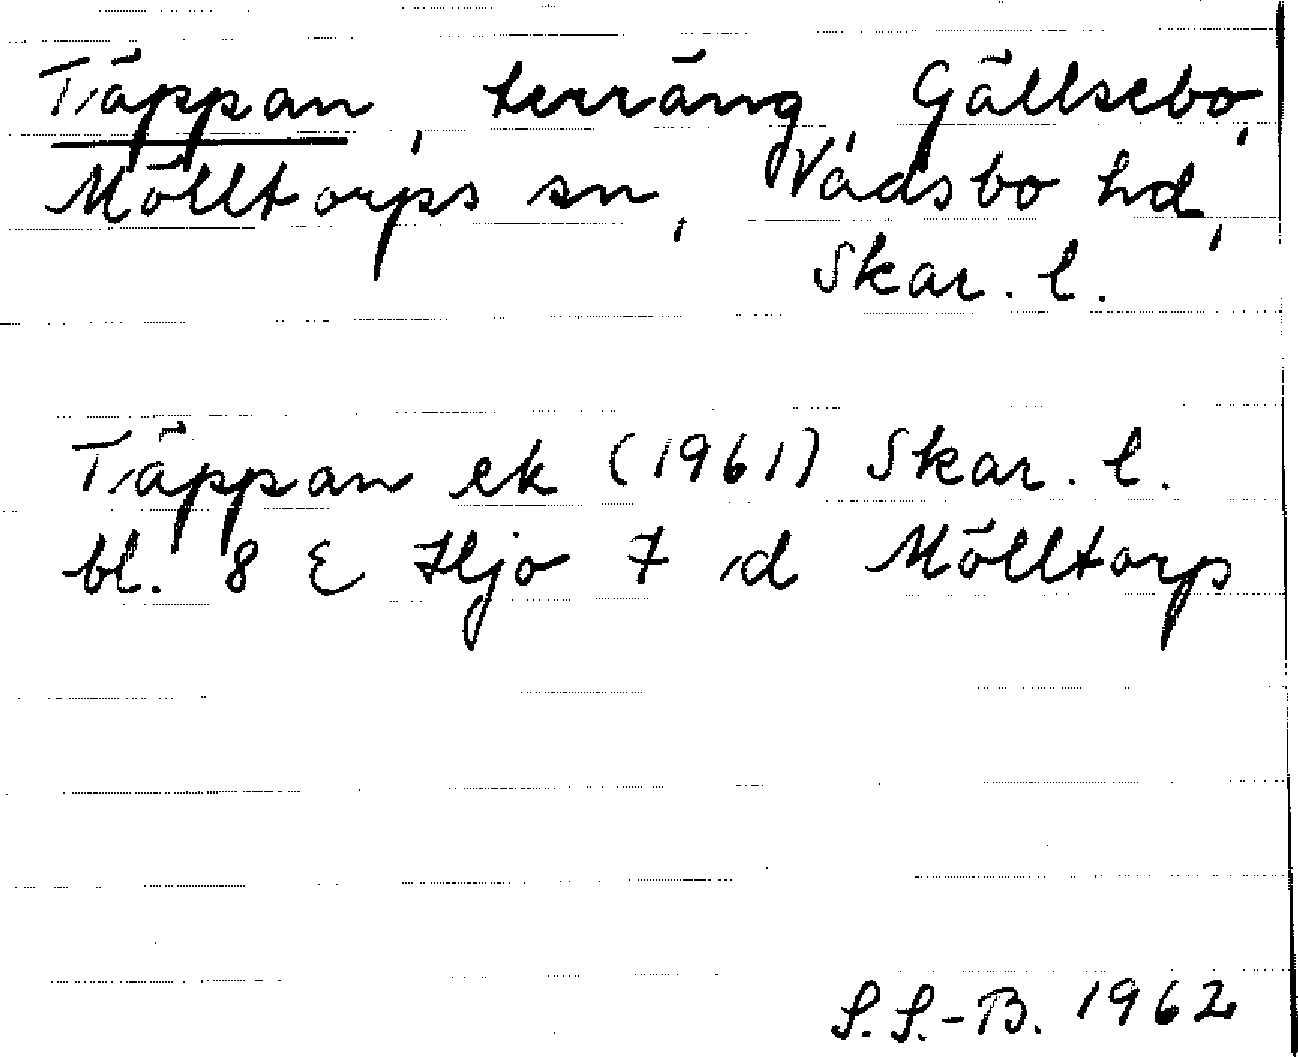 Täppan, terräng, Gällsebo,
Mölltorps sn, Vadsbo hd,
Skar. l.
Täppan ek (1961) Skar. l.
bl. 8 E Hjo 7 d Mölltorp
S. S.-B. 1962